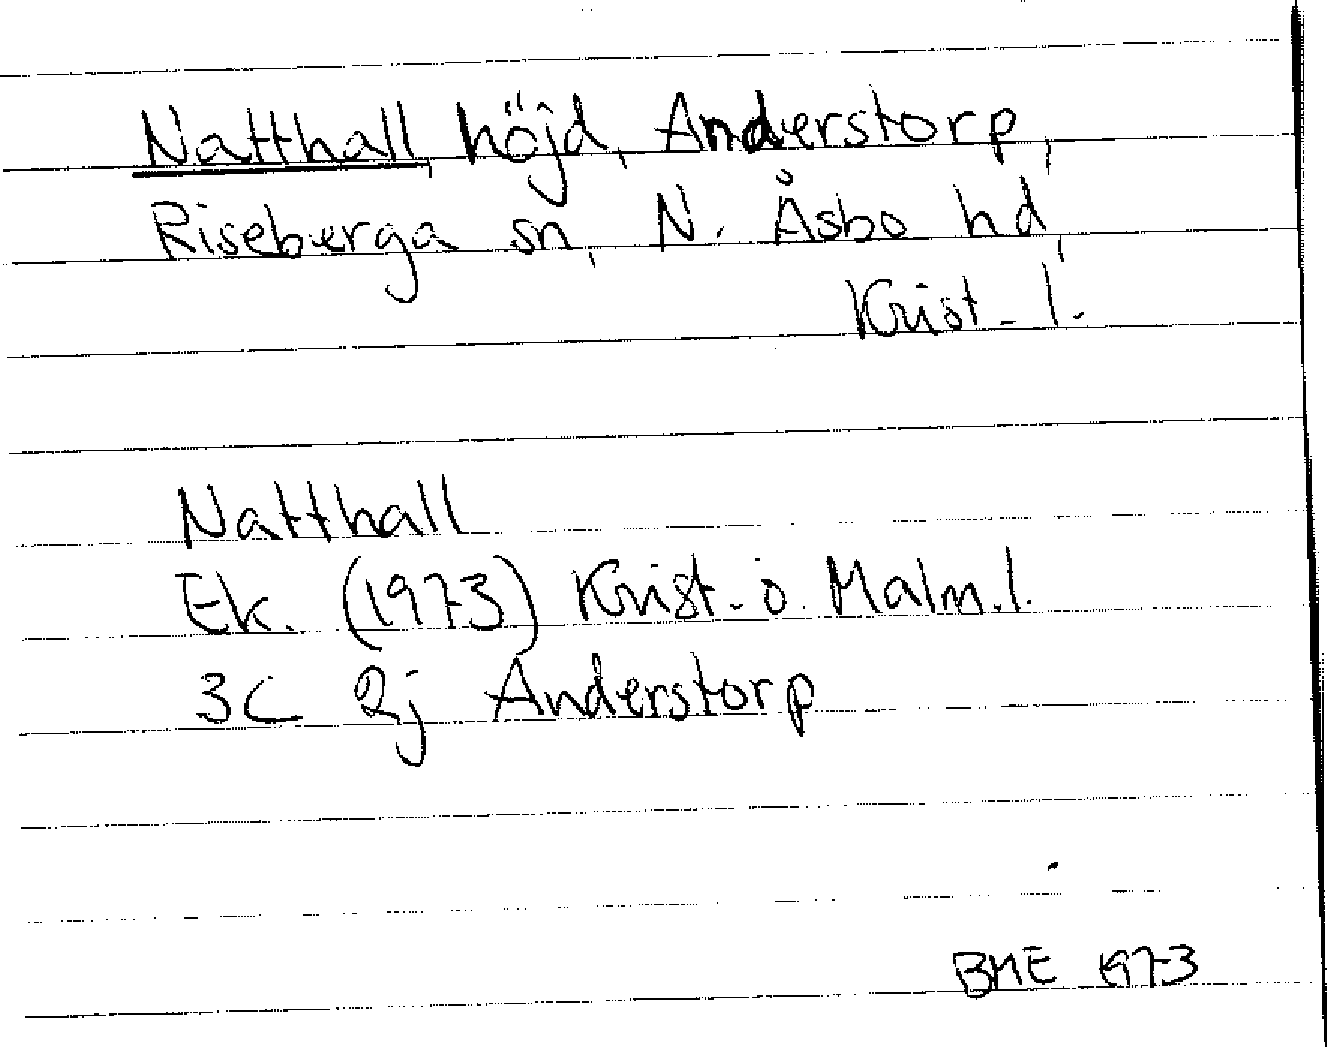 Natthall, höjd, Anderstorp,
Riseberga sn, N. Åsbo hd,
Krist. l.
Natthall
Ek. (1973) Krist. o. Malm. l.
3C 2j Anderstorp
BME 1973